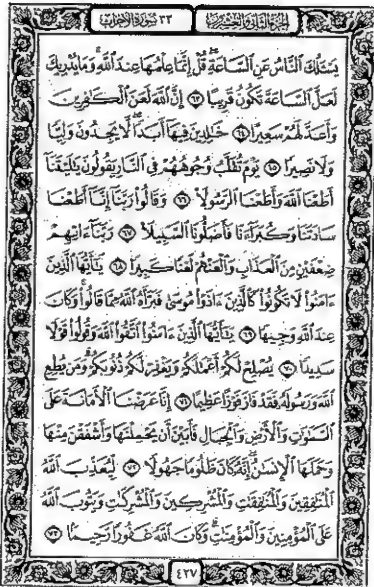 الجزء الثاني والعشرون ٣٣ سورة الأحزاب
يَسْـَٔلُكَ ٱلنَّاسُ عَنِ ٱلسَّاعَةِ ۖ قُلْ إِنَّمَا عِلْمُهَا عِندَ ٱللَّهِ ۚ وَمَا يُدْرِيكَ
لَعَلَّ ٱلسَّاعَةَ تَكُونُ قَرِيبًا ٦٣ إِنَّ ٱللَّهَ لَعَنَ ٱلْكَٰفِرِينَ
وَأَعَدَّ لَهُمْ سَعِيرًا ٦٤ خَٰلِدِينَ فِيهَآ أَبَدًا ۖ لَّا يَجِدُونَ وَلِيًّا
وَلَا نَصِيرًا ٦٥ يَوْمَ تُقَلَّبُ وُجُوهُهُمْ فِى ٱلنَّارِ يَقُولُونَ يَٰلَيْتَنَآ
أَطَعْنَا ٱللَّهَ وَأَطَعْنَا ٱلرَّسُولَا۠ ٦٦ وَقَالُوا۟ رَبَّنَآ إِنَّآ أَطَعْنَا
سَادَتَنَا وَكُبَرَآءَنَا فَأَضَلُّونَا ٱلسَّبِيلَا۠ ٦٧ رَبَّنَآ ءَاتِهِمْ
ضِعْفَيْنِ مِنَ ٱلْعَذَابِ وَٱلْعَنْهُمْ لَعْنًا كَبِيرًا ٦٨ يَٰٓأَيُّهَا ٱلَّذِينَ
ءَامَنُوا۟ لَا تَكُونُوا۟ كَٱلَّذِينَ ءَاذَوْا۟ مُوسَىٰ فَبَرَّأَهُ ٱللَّهُ مِمَّا قَالُوا۟ ۚ وَكَانَ
عِندَ ٱللَّهِ وَجِيهًا ٦٩ يَٰٓأَيُّهَا ٱلَّذِينَ ءَامَنُوا۟ ٱتَّقُوا۟ ٱللَّهَ وَقُولُوا۟ قَوْلًا
سَدِيدًا ٧٠ يُصْلِحْ لَكُمْ أَعْمَٰلَكُمْ وَيَغْفِرْ لَكُمْ ذُنُوبَكُمْ ۗ وَمَن يُطِعِ
ٱللَّهَ وَرَسُولَهُۥ فَقَدْ فَازَ فَوْزًا عَظِيمًا ٧١ إِنَّا عَرَضْنَا ٱلْأَمَانَةَ عَلَى
ٱلسَّمَٰوَٰتِ وَٱلْأَرْضِ وَٱلْجِبَالِ فَأَبَيْنَ أَن يَحْمِلْنَهَا وَأَشْفَقْنَ مِنْهَا
وَحَمَلَهَا ٱلْإِنسَٰنُ ۖ إِنَّهُۥ كَانَ ظَلُومًا جَهُولًا ٧٢ لِّيُعَذِّبَ ٱللَّهُ
ٱلْمُنَٰفِقِينَ وَٱلْمُنَٰفِقَٰتِ وَٱلْمُشْرِكِينَ وَٱلْمُشْرِكَٰتِ وَيَتُوبَ ٱللَّهُ
عَلَى ٱلْمُؤْمِنِينَ وَٱلْمُؤْمِنَٰتِ ۗ وَكَانَ ٱللَّهُ غَفُورًا رَّحِيمًا ٧٣
٤٢٧